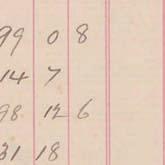 99 0 8
14 7
98 12 6
31 18